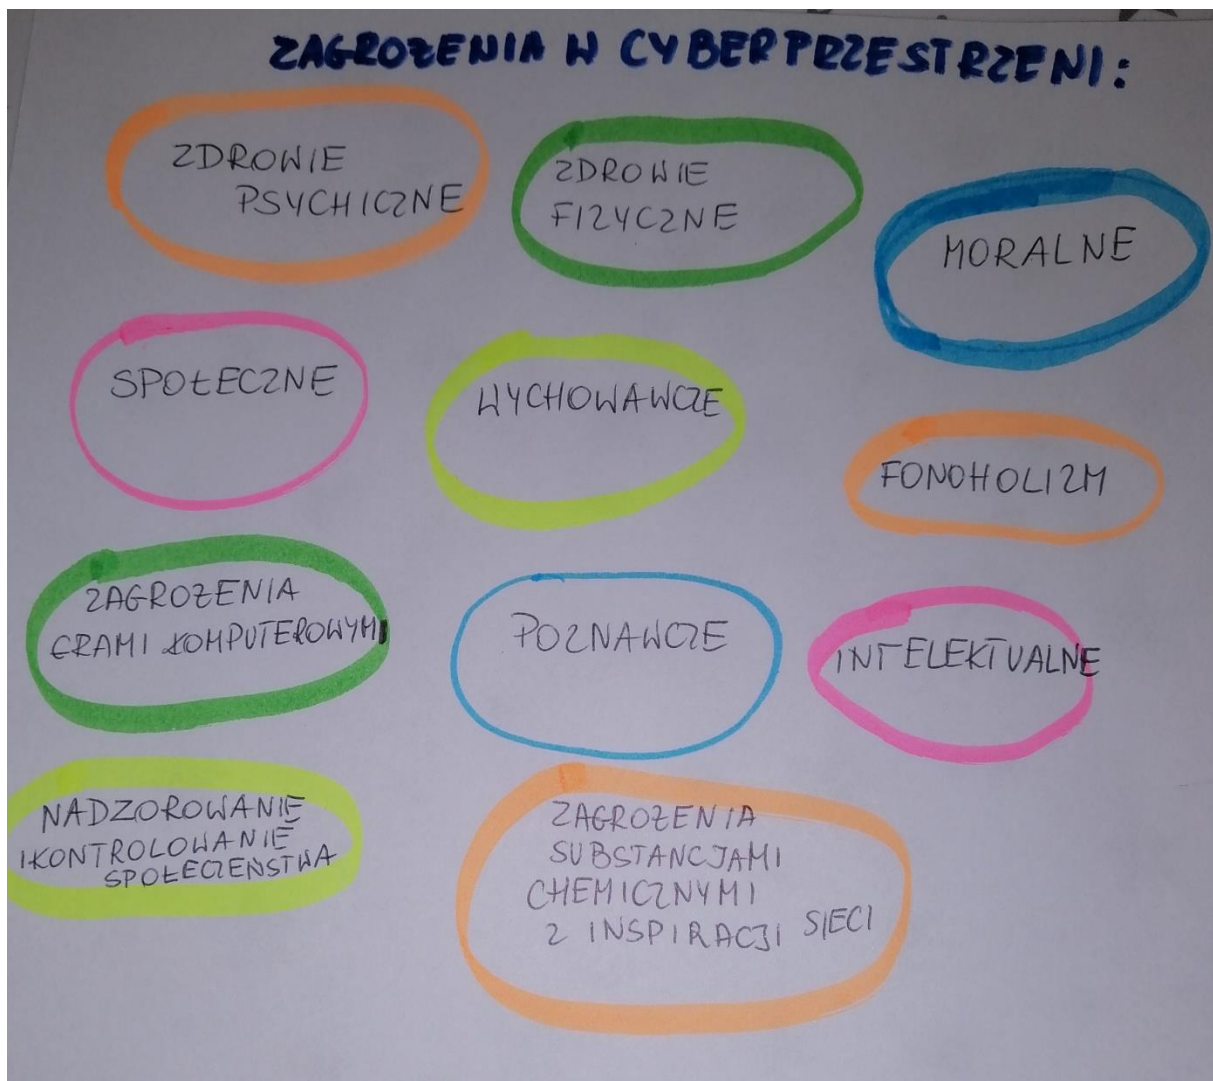 ZAGROŻENIA W CYBERPRZESTRZENI:
ZDROWIE
PSYCHICZNE
ZDROWIE
FIZYCZNE
MORALNE
SPOŁECZNE
WYCHOWAWCZE
FONOHOLIZM
ZAGROŻENIA
GRAMI KOMPUTEROWYMI
POZNAWCZE
INTELEKTUALNE
NADZOROWANIE
I KONTROLOWANIE
SPOŁECZEŃSTWA
ZAGROŻENIA
SUBSTANCJAMI
CHEMICZNYMI
Z INSPIRACJI SIECI